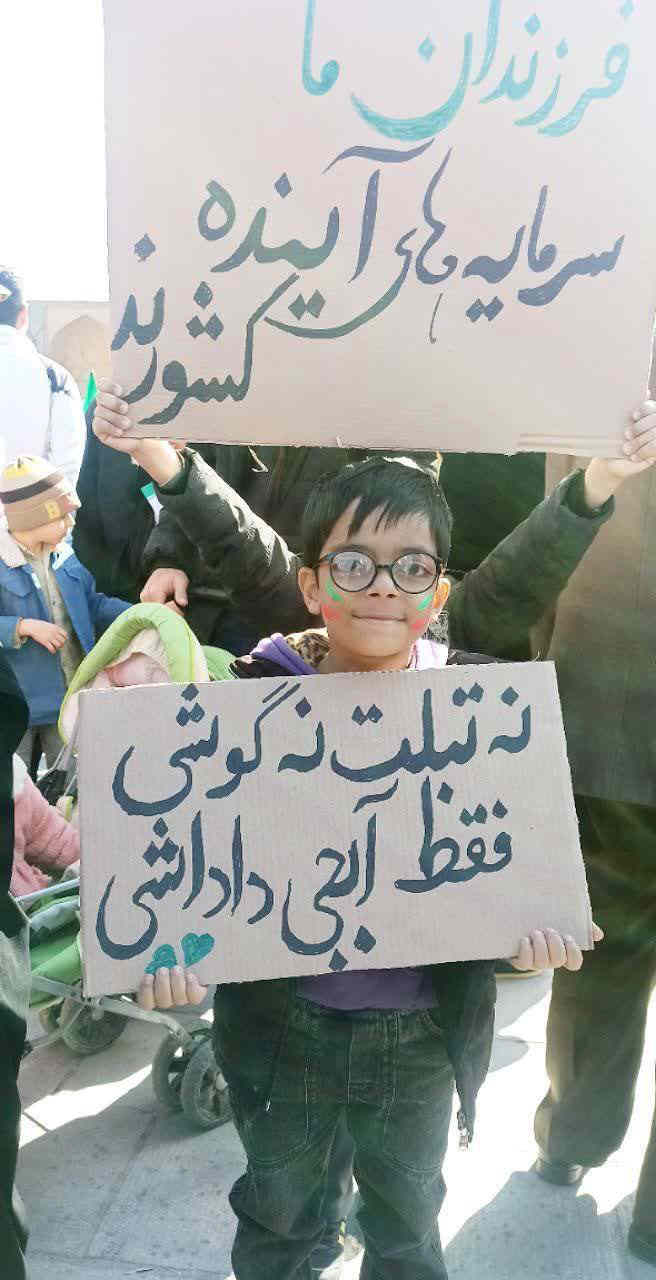 فرزندان ما
سرمایه های آینده
کشورند
نه تبلت نه گوشی
فقط آبجی داداشی